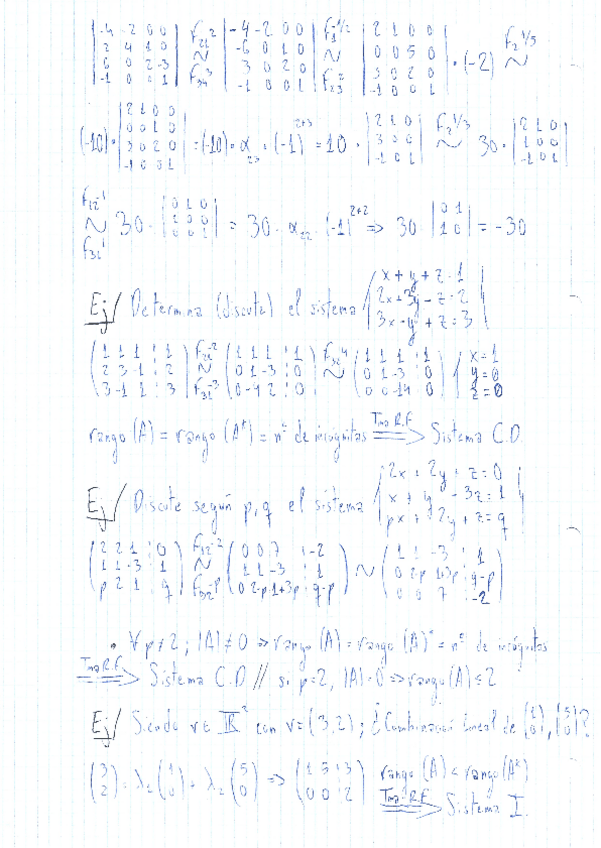 |-4 -2 0 0; 2 4 1 0; 6 0 2 -3; -1 0 0 1| ~ |-4 -2 0 0; -6 0 1 0; 3 0 2 0; -1 0 0 1| ~ |2 1 0 0; 0 0 5 0; 3 0 2 0; -1 0 0 1| · (-2) F₂^1/5 ~
(-10) · |2 1 0 0; 0 0 1 0; 3 0 2 0; -1 0 0 1| = (-10) · α₂₃ · (-1)^2+3 = 10 · |2 1 0; 3 0 0; -1 0 1| F₂^1/3 ~ 30 · |2 1 0; 1 0 0; -1 0 1|
~ 30 · |0 1 0; 1 0 0; 0 0 1| = 30 · (-1)^2+2 => 30 · |0 1; 1 0| = -30
Ej/ Determina (discute) el sistema { x + y + z = 1; 2x + 3y - z = 2; 3x - y + z = 3 }
(1 1 1 ⋮ 1; 2 3 -1 ⋮ 2; 3 -1 1 ⋮ 3) ~ (1 1 1 ⋮ 1; 0 1 -3 ⋮ 0; 0 -4 2 ⋮ 0) ~ (1 1 1 ⋮ 1; 0 1 -3 ⋮ 0; 0 0 -14 ⋮ 0) { x = 1; y = 0; z = 0
rango (A) = rango (A*) = nº de incógnitas Tma R.F. => Sistema C.D.
Ej/ Discute según p, q el sistema { 2x + 2y + z = 0; x + y - 3z = 1; px + 2y + z = q }
(2 2 1 ⋮ 0; 1 1 -3 ⋮ 1; p 2 1 ⋮ q) ~ (0 0 7 ⋮ -2; 1 1 -3 ⋮ 1; 0 2-p 1+3p ⋮ q-p) ~ (1 1 -3 ⋮ 1; 0 2-p 1+3p ⋮ q-p; 0 0 7 ⋮ -2)
• ∀ p ≠ 2; |A| ≠ 0 => rango (A) = rango (A)* = nº de incógnitas
Tma R.F. => Sistema C.D // si p=2, |A| = 0 => rango (A) ≤ 2
Ej/ Siendo v ∈ ℝ² con v = (3, 2); ¿Combinación lineal de (1; 0), (5; 0)?
(3; 2) = λ₁ (1; 0) + λ₂ (5; 0) => (1 5 ⋮ 3; 0 0 ⋮ 2) rango (A) < rango (A*)
Tma R.F. => Sistema I.